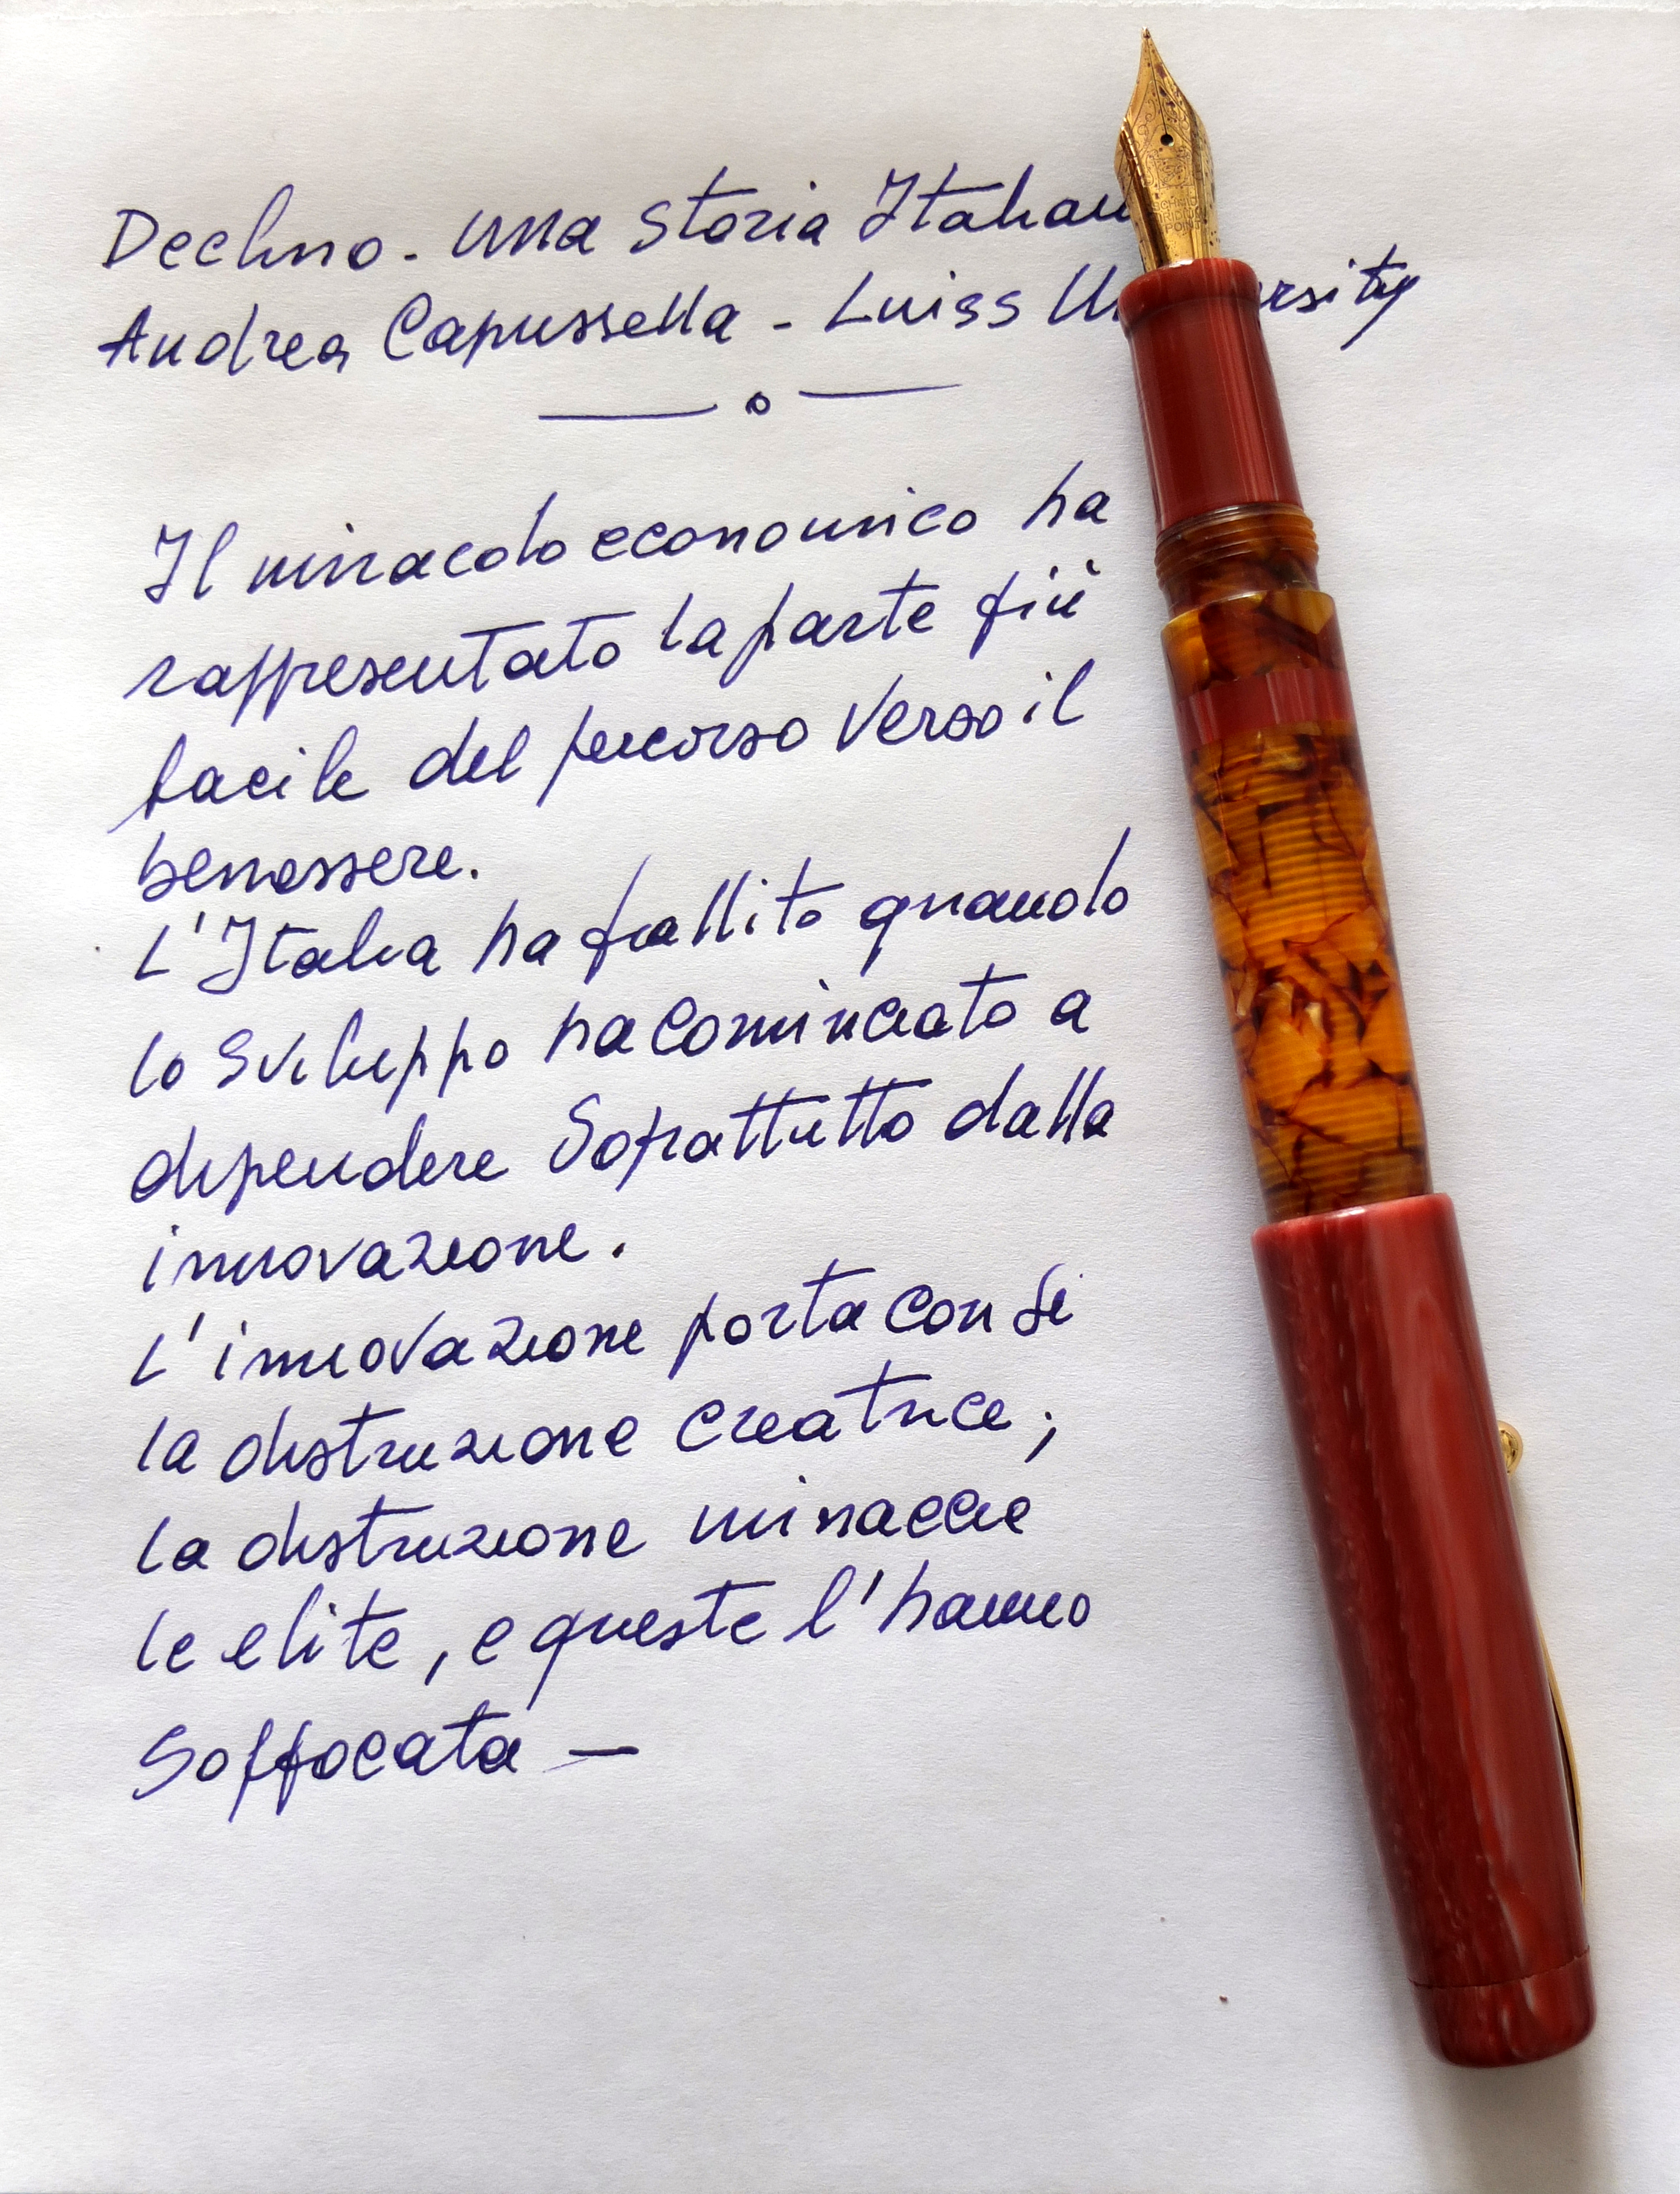 Declino. Una Storia Italian
Andrea Capussella - Luiss Un ersity
Il miracolo economico ha
rappresentato la parte più
facile del percorso verso il
benessere.
L'Italia ha fallito quando
lo sviluppo ha cominciato a
dipendere soprattutto dalla
innovazione.
L'innovazione porta con sé
la distruzione creatrice;
la distruzione minaccia
le elite, e queste l'hanno
soffocata —